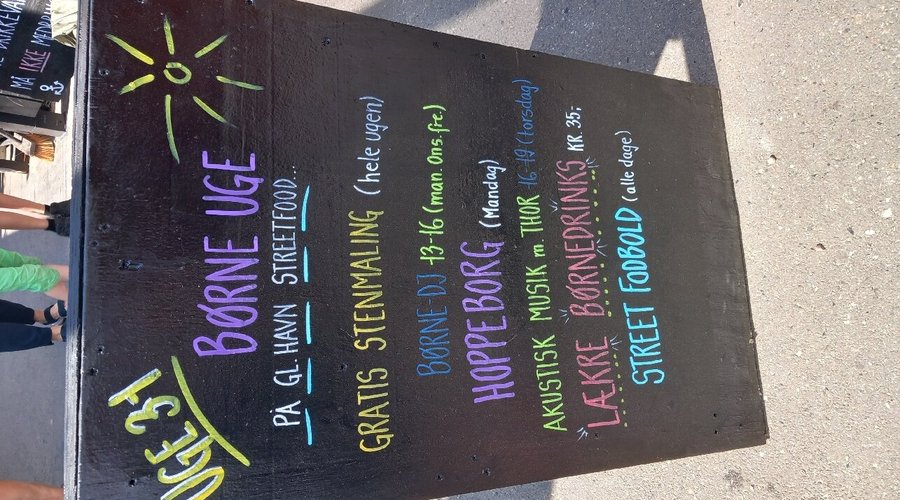 UGE 31
BØRNE UGE
PÅ GL. HAVN STREETFOOD...
GRATIS STENMALING (hele ugen)
BØRNE-DJ 13-16 (man. Ons. fre.)
HOPPEBORG (Mandag)
AKUSTISK MUSIK m. THOR 16-19 (torsdag)
LÆKRE BØRNEDRINKS KR. 35;
STREET FODBOLD (alle dage)
MÅ IKKE